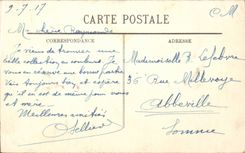 9-7-17
CM
CARTE POSTALE
CORRESPONDANCE
ADRESSE
Ma chère Raymonde
Je viens de trouver une
belle collection en couleurs. Je
vous en réserve une bonne partie
Vais toujours bien et espère
qu'il en est de même pour vous
et mère.
Meilleures amitiés
Mademoiselle R. Lefebvre
36 Rue Millevoye
Abbeville
Somme